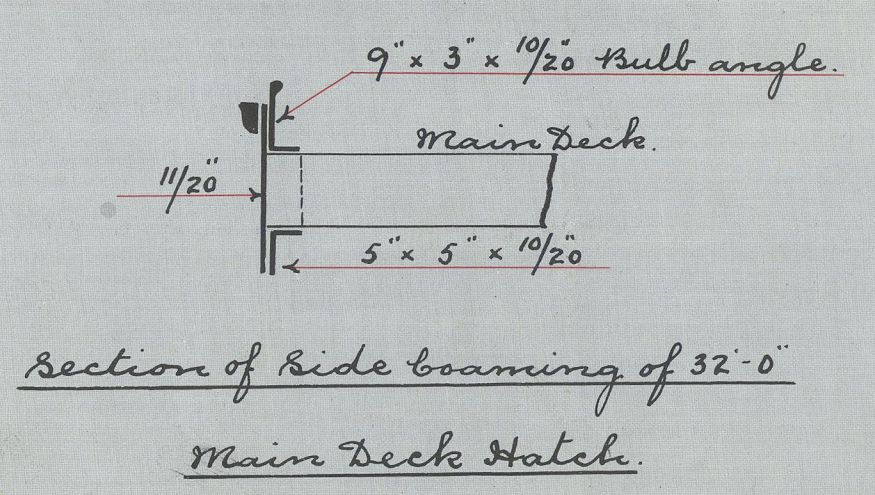 9" x 3" x 10/20" Bulb angle.
Main Deck.
11/20"
5" x 5" x 10/20"
Section of Side Coaming of 32'-0"
Main Deck Hatch.